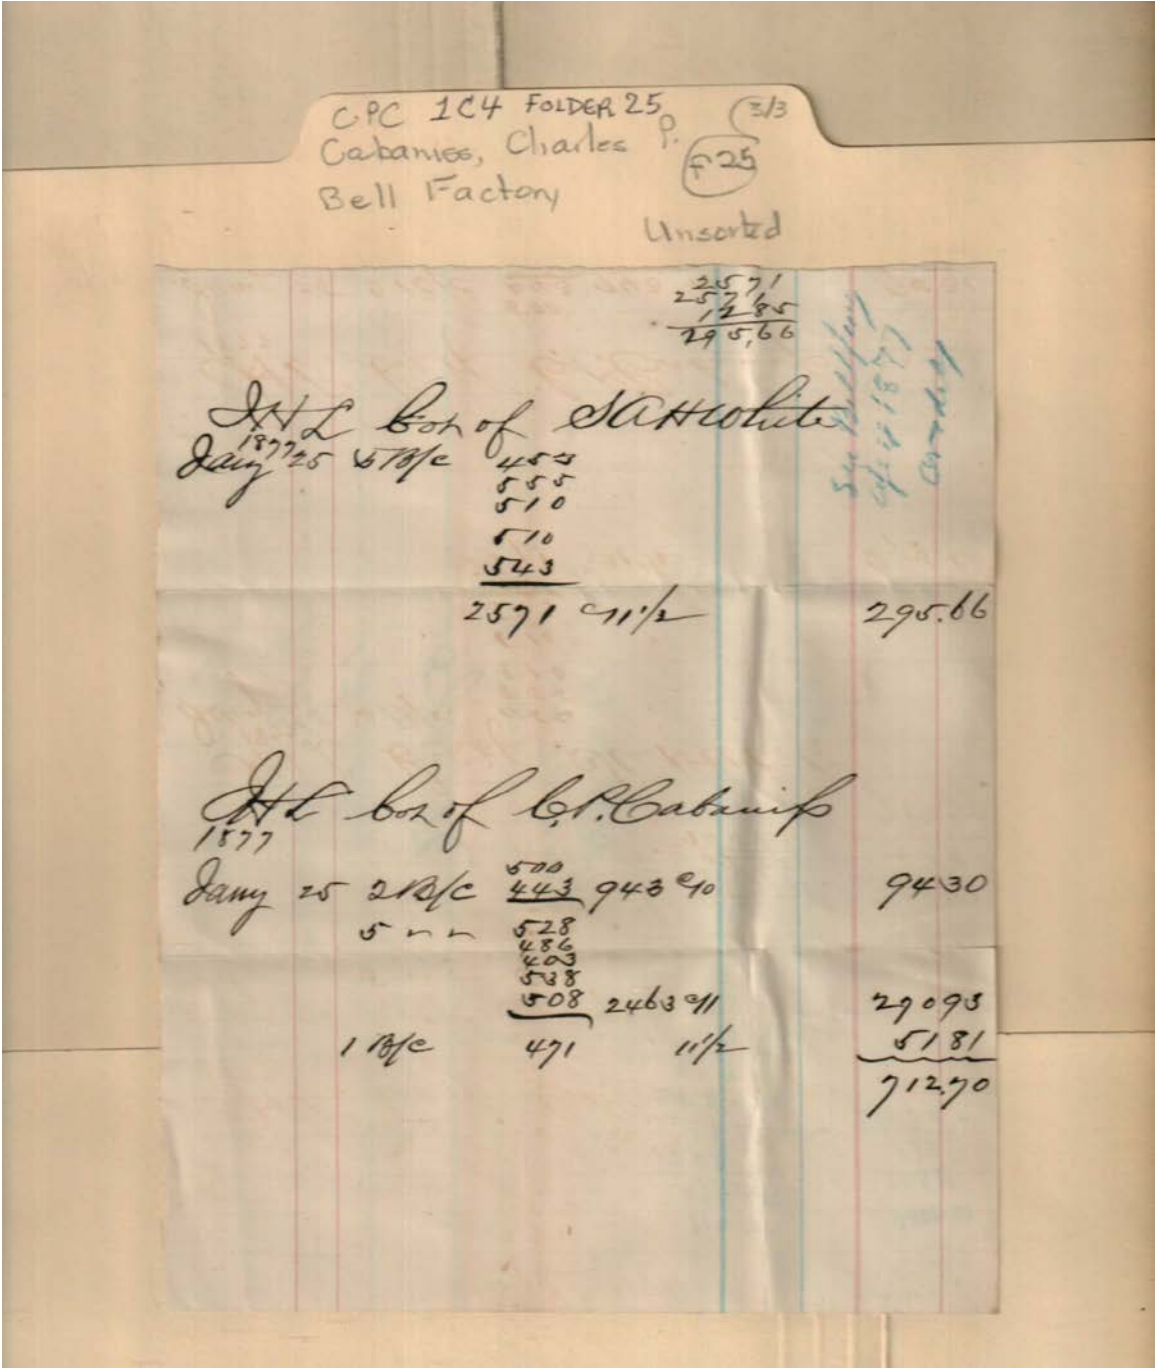 CPC 1C4 FOLDER 25
3/3
Cabaniss, Charles P.
F25
Bell Factory
Unsorted
2571
2571
1285
295,66
JHL Bot of S A H White
1877
Jany 25 5 B/c 453
555
510
510
543
2571 @ 11 1/2 295.66
JHL Bot of C. P. Cabaniss
1877
500
Jany 25 2 B/c 443 943 @ 10 94 30
5 " " 528
486
403
538
508 2463 @ 11 290 93
1 B/c 471 11 1/2 51 81
712.70
1877